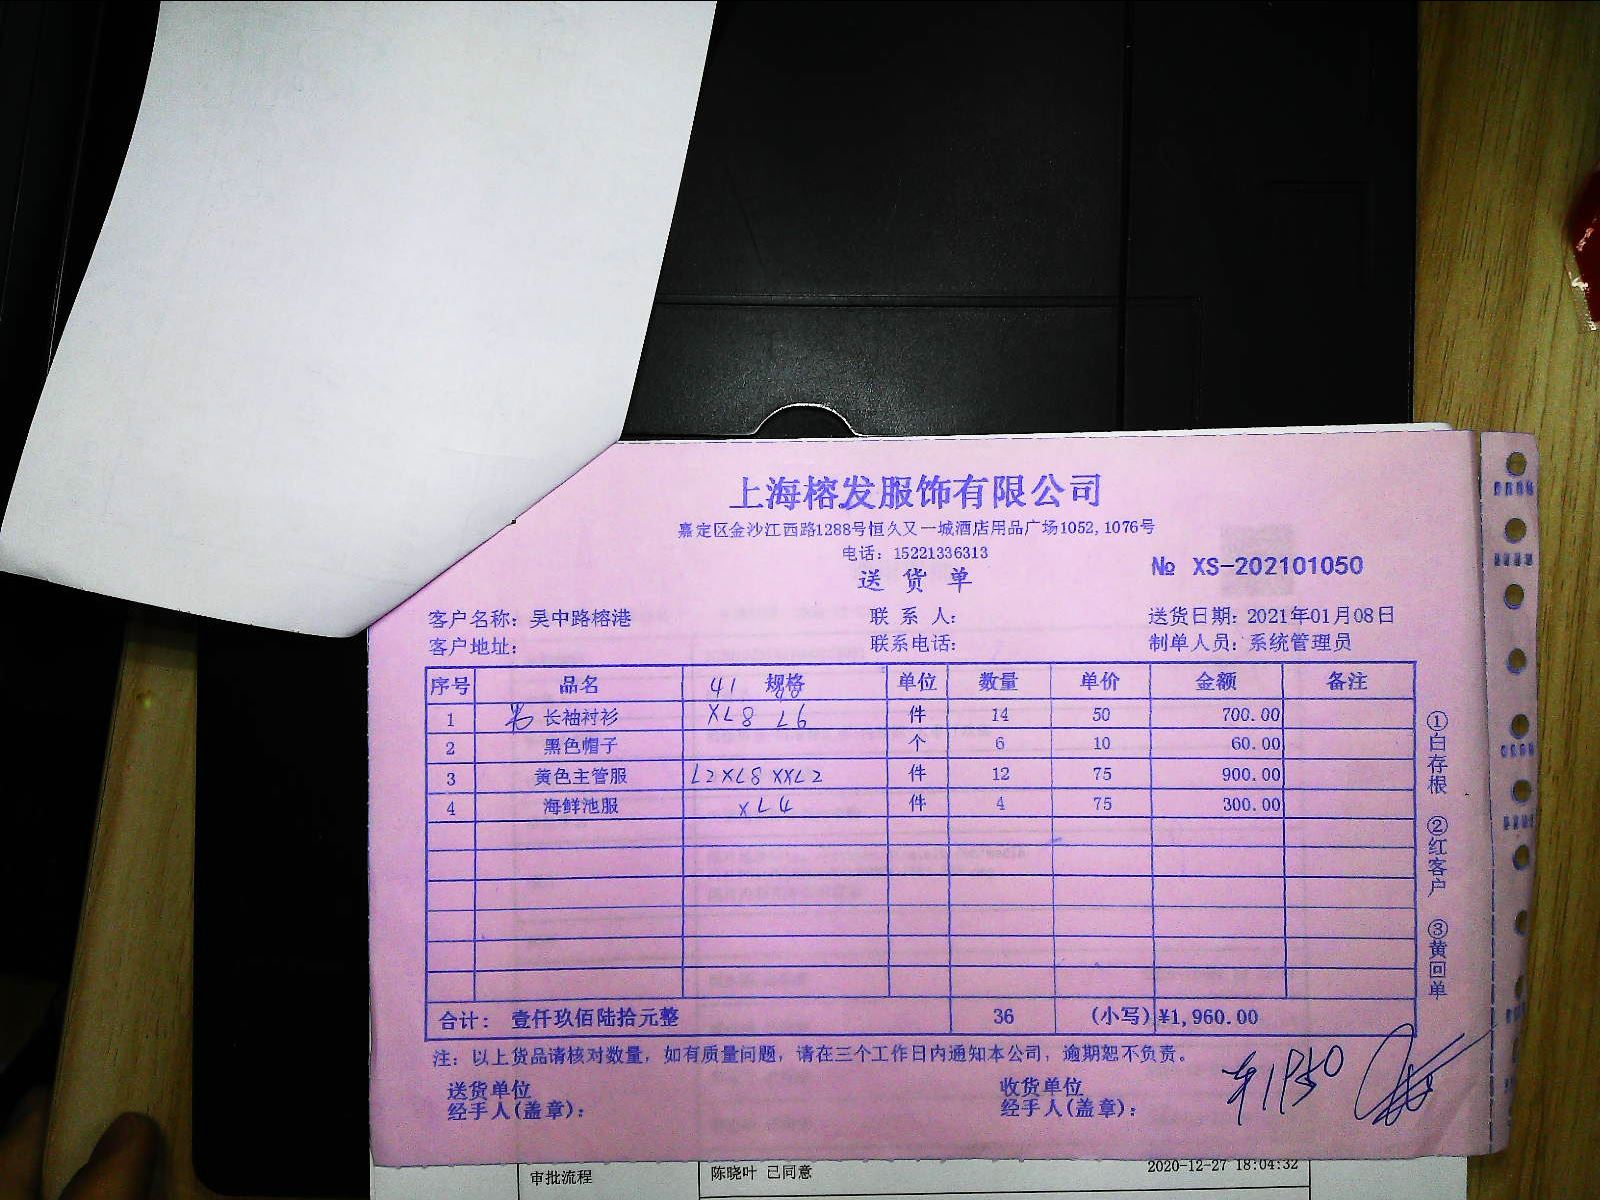 上海榕发服饰有限公司
嘉定区金沙江西路1288号恒久又一城酒店用品广场1052,1076号
电话：15221336313
送货单
№ XS-202101050
客户名称：吴中路榕港 联系人： 送货日期：2021年01月08日
客户地址： 联系电话： 制单人员：系统管理员
序号 品名 41 规格 单位 数量 单价 金额 备注
1 男 长袖衬衫 XL8 L6 件 14 50 700.00
2 黑色帽子 个 6 10 60.00
3 黄色主管服 L2XL8XXL2 件 12 75 900.00
4 海鲜池服 XL4 件 4 75 300.00
合计：壹仟玖佰陆拾元整 36 (小写) ¥1,960.00
注：以上货品请核对数量，如有质量问题，请在三个工作日内通知本公司，逾期恕不负责。
送货单位 收货单位
经手人(盖章)： 经手人(盖章)：
①白存根
②红客户
③黄回单
审批流程 陈晓叶 已同意 2020-12-27 18:04:32